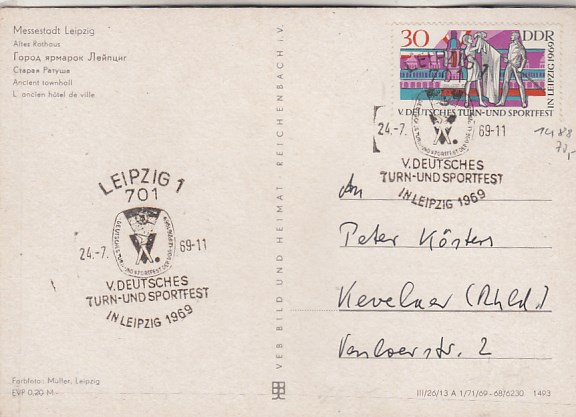 Messestadt Leipzig
Altes Rathaus
Город ярмарок Лейпциг
Старая Ратуша
Ancient townhall
L' ancien hôtel de ville
30 DDR
IN LEIPZIG 1969
V. DEUTSCHES TURN-UND SPORTFEST
LEIPZIG 1
701
24.-7. 69-11
V. DEUTSCHES
TURN-UND SPORTFEST
IN LEIPZIG 1969
1488
LEIPZIG 1
701
24.-7. 69-11
V. DEUTSCHES
TURN-UND SPORTFEST
IN LEIPZIG 1969
VEB BILD UND HEIMAT REICHENBACH i. V.
An
Peter Kösters
Kevelaer (Rhld.)
Venloerstr. 2
Farbfoto: Müller, Leipzig
EVP 0,20 M
III/26/13 A 1/71/69 - 68/6230 1493